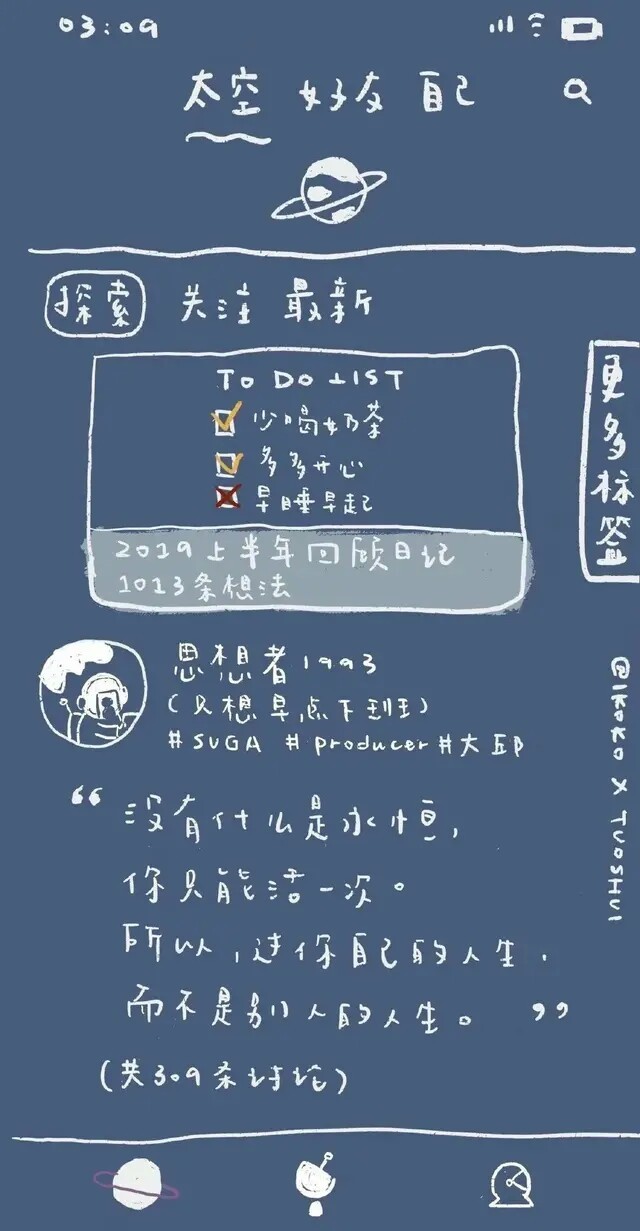 03:09
太空 好友 自己
探索 关注 最新
TO DO LIST
少喝奶茶
多多开心
早睡早起
2019上半年回顾日记
1013条想法
更多标签
思想者1993
(只想早点下班)
#SUGA #producer#大邱
@IKOKO X TUOSHUI
“没有什么是永恒,
你只能活一次。
所以,过你自己的人生,
而不是别人的人生。”
(共309条讨论)